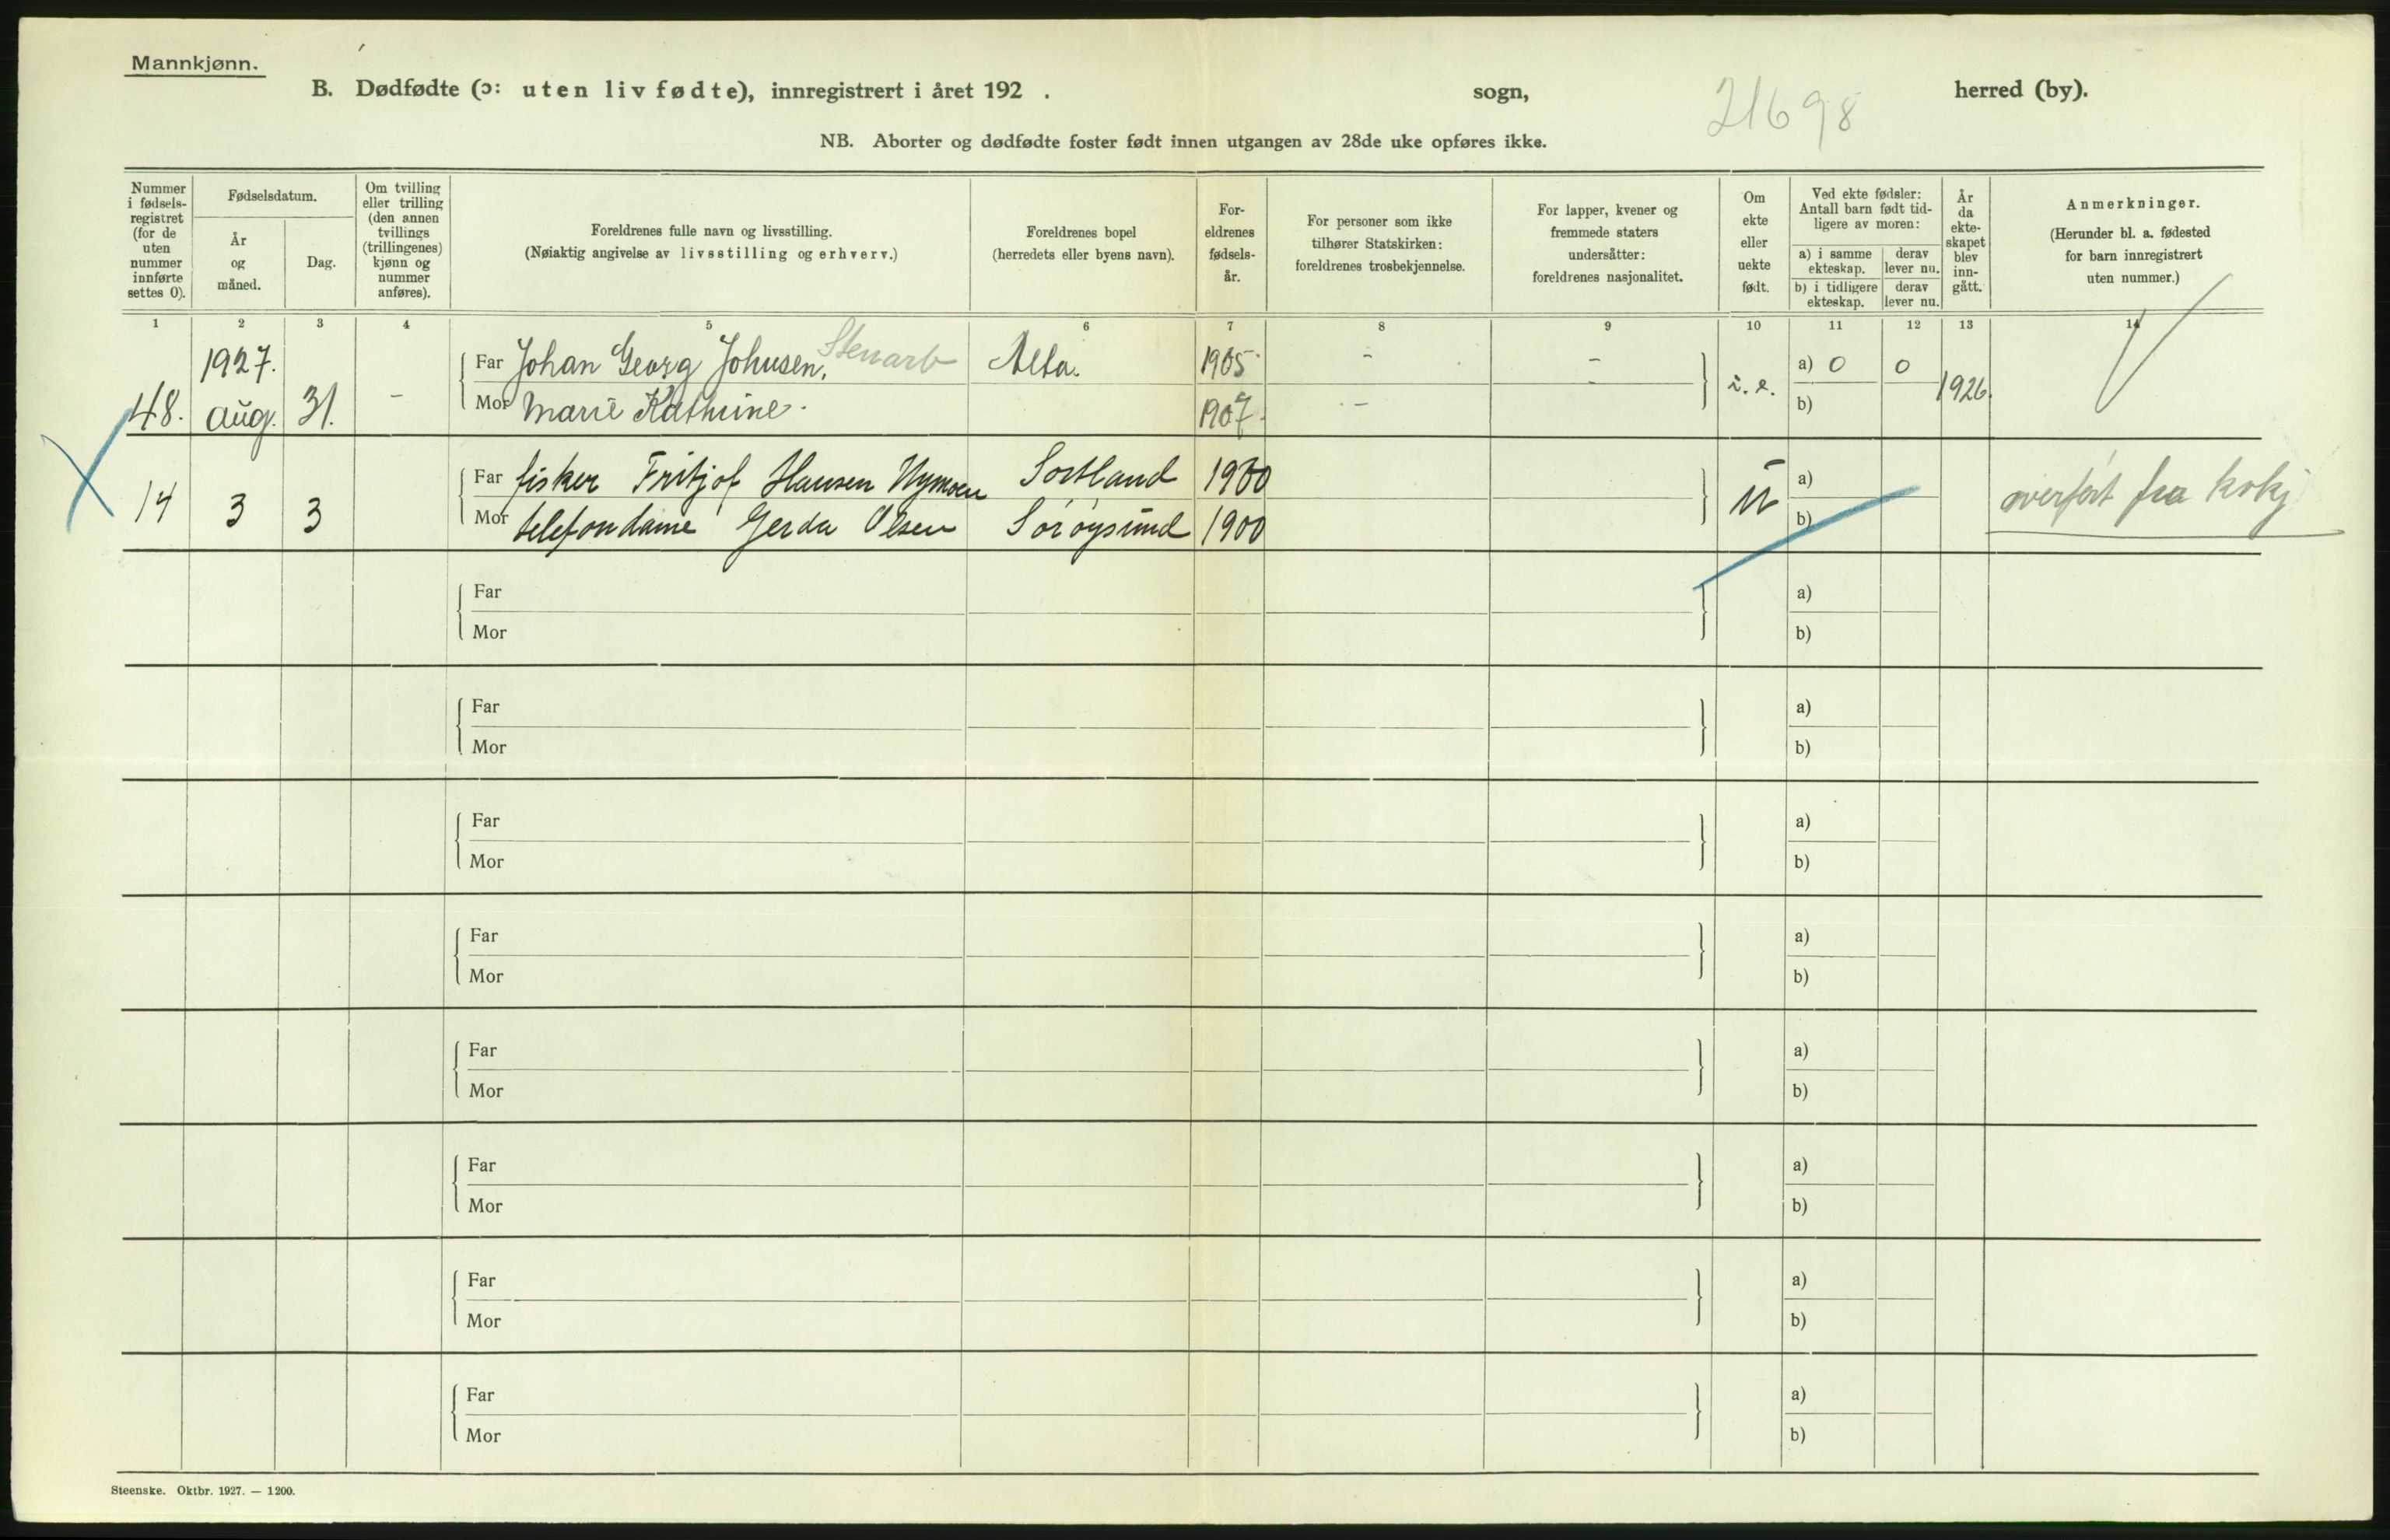 Mannkjønn.
B. Dødfødte (ɔ: uten liv fødte), innregistrert i året 192 . sogn, herred (by).
21698
NB. Aborter og dødfødte foster født innen utgangen av 28de uke opføres ikke.
Nummer i fødsels-registret (for de uten nummer innførte settes 0).
Fødselsdatum.
År og måned.
Dag.
Om tvilling eller trilling (den annen tvillings (trillingenes) kjønn og nummer anføres).
Foreldrenes fulle navn og livsstilling.
(Nøiaktig angivelse av livsstilling og erhverv.)
Foreldrenes bopel
(herredets eller byens navn).
For-eldrenes fødsels-år.
For personer som ikke tilhører Statskirken: foreldrenes trosbekjennelse.
For lapper, kvener og fremmede staters undersåtter: foreldrenes nasjonalitet.
Om ekte eller uekte født.
Ved ekte fødsler: Antall barn født tid-ligere av moren:
a) i samme ekteskap.
derav lever nu.
b) i tidligere ekteskap.
derav lever nu.
År da ekte-skapet blev inn-gått.
Anmerkninger.
(Herunder bl. a. fødested for barn innregistrert uten nummer.)
1 2 3 4 5 6 7 8 9 10 11 12 13 14
1927. Far Johan Georg Johnsen, Stenarb Alta. 1905 - - a) 0 0
48. Aug. 31. - Mor Marie Kathrine. 1907. - i. e. b) 1926.
Far fisker Fritjof Hansen Nymoen Sortland 1900 a)
14 3 3 Mor telefondame Gerda Olsen Sørøysund 1900 u b) overført fra kvkj
Far a)
Mor b)
Far a)
Mor b)
Far a)
Mor b)
Far a)
Mor b)
Far a)
Mor b)
Far a)
Mor b)
Far a)
Mor b)
Far a)
Mor b)
Steenske. Oktbr. 1927. — 1200.